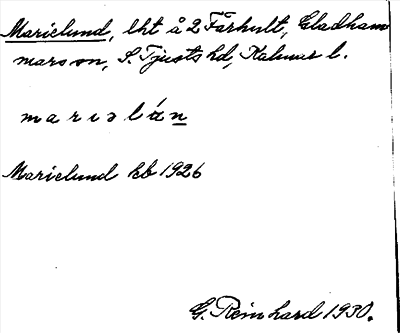 Marielund, lht å 2 Fårhult, Gladham
mars sn, S. Tjusts hd, Kalmar l.
m a r ı ə l ú n
Marielund kb 1926
G. Reinhard 1930.